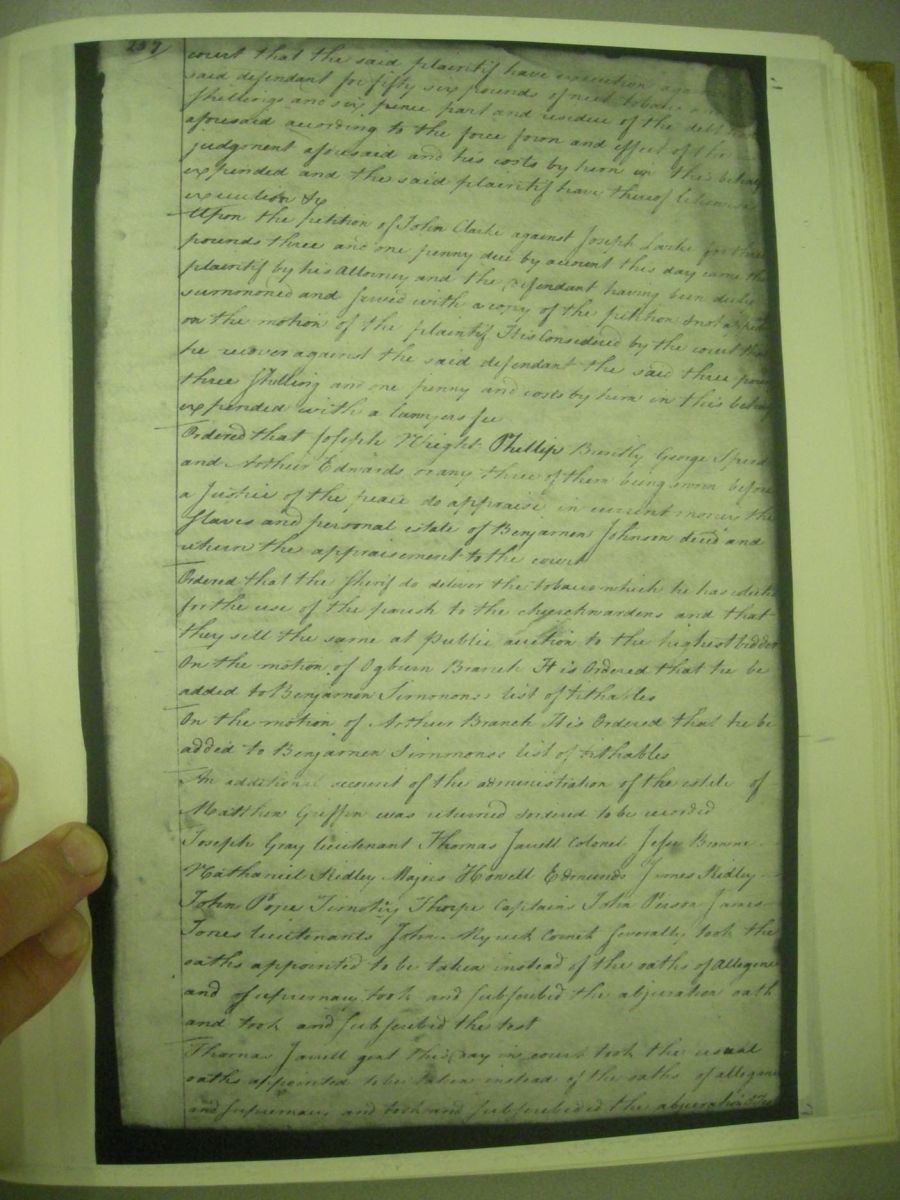 237
court that the said plaintif have execution against
said defendant for fifty six pounds of neet tobacco
shillings and six pence part and residue of the debt
aforesaid according to the force form and effect of the
judgment aforesaid and his costs by him in this behalf
expended and the said plaintif have thereof likewise
execution &c
Upon the petition of John Clarke against Joseph for three
pounds three and one penny due by account this day came the
plaintif by his Attorney and the defendant having been duly
summoned and served with a copy of the petition & not
on the motion of the plaintif It is Considered by the court that
he recover against the said defendant the said three poun
three Shilling and one penny and costs by him in this behalf
expended with a lawyers fee
Ordered that Joseph Wright Phillip George
and Arthur Edwards or any three of them being sworn before
a Justice of the peace do appraise in current money the
Slaves and personal estate of Benjamen Johnson decd and
return the appraisement to the court
Ordered that the Sherif do deliver the tobacco which he has
for the use of the parish to the churchwardens and that
they sell the same at public auction to the highest bidder
On the motion of Ogburn Branch It is Ordered that he be
added to Benjamen Simmonss list of tithables
On the motion of Arthur Branch It is Ordered that he be
added to Benjamen Simmonss list of tithables
An additional account of the administration of the estate of
Matthew Griffin was returned & ordered to be recorded
Joseph Gray lieutenant Thomas Jarrell Colonel Jesse Browne
Nathaniel Ridley Majors Howell Edmunds James Ridley
John Pope Timothy Thorpe Captains John Person James
Jones lieutenants John Myrick Cornet severally took the
oaths appointed to be taken instead of the oaths of Allegene
and of supremacy took and subscribed the abjuration oath
and took and subscribed the test
Thomas Jarrell gent this day in court took the usual
oaths appointed to be taken instead of the oaths of allegene
and supremacy and took and subscribed the abjuration